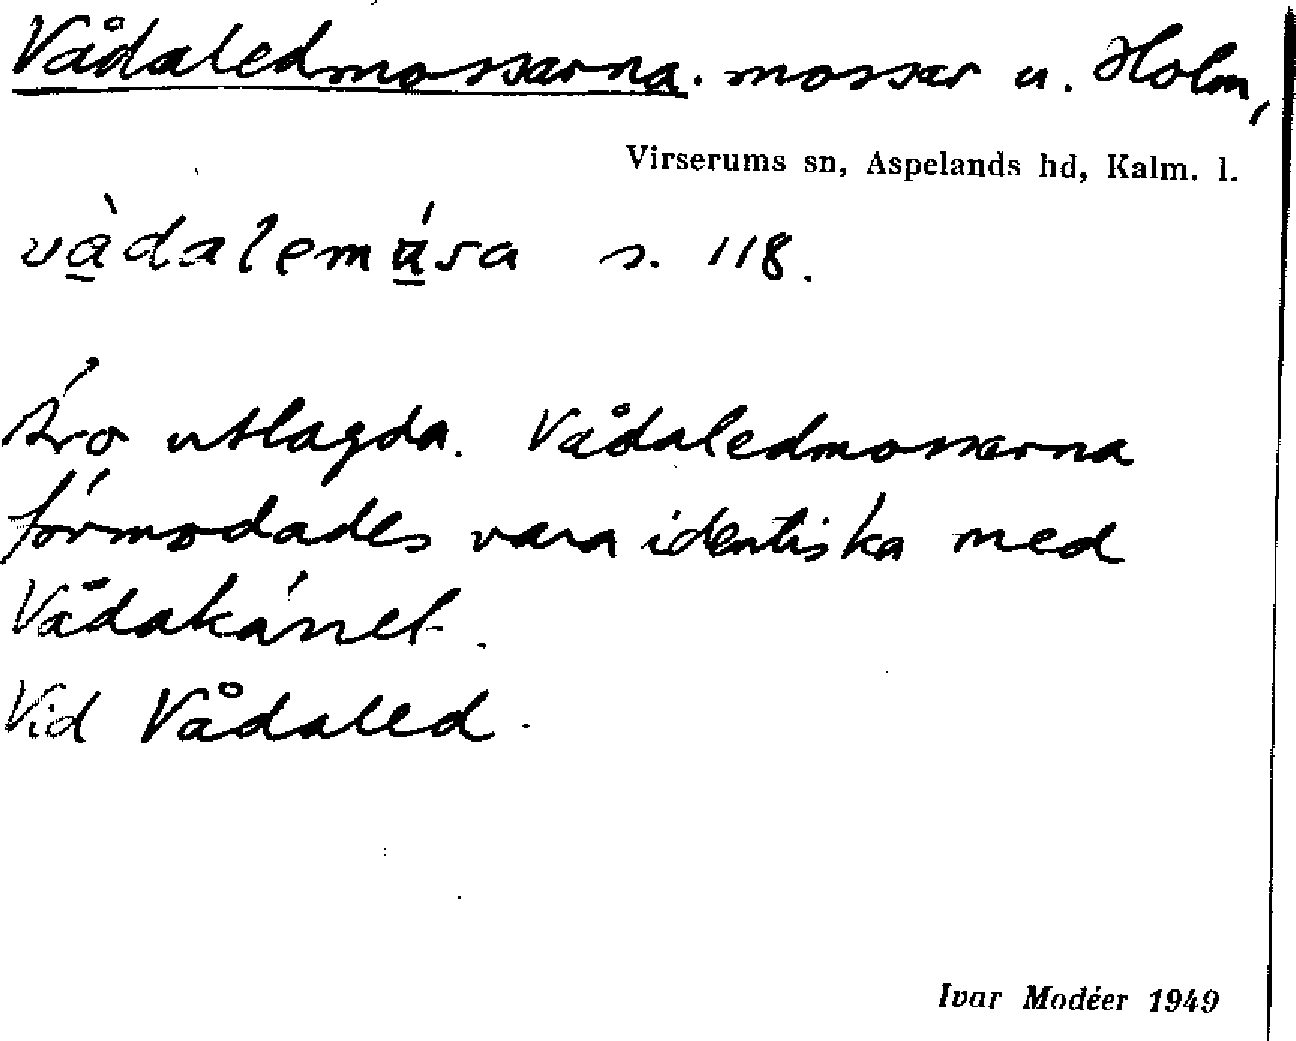 Vådaledmossarna. mossar u. Holm,
Virserums sn, Aspelands hd, Kalm. l.
vàdalemúsa s. 118.
Äro utlagda. Vådaledmossarna
förmodades vara identiska med
Vådakärret.
Vid Vådaled.
Ivar Modéer 1949